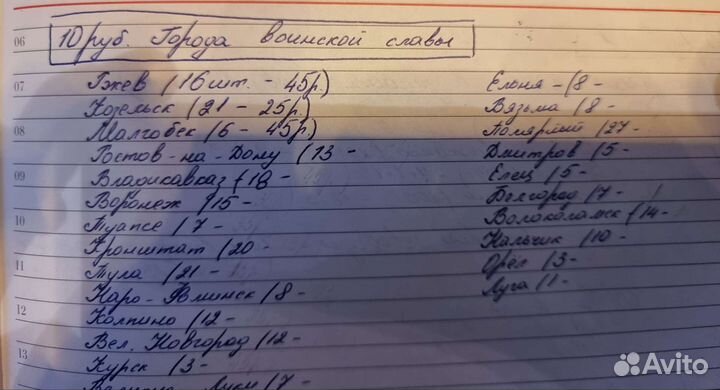 10 руб. Города воинской славы
06
07
Ржев (16 шт. - 45р.)
Козельск (21 - 25р.)
08
Малгобек (6 - 45р.)
Ростов-на-Дону (13 -
09
Владикавказ (18 -
Воронеж (15 -
10
Туапсе (7 -
Кронштат (20 -
11
Тула (21 -
Наро-Фоминск (8 -
12
Колпино (12 -
Вел. Новгород (12 -
13
Курск (3 -
Великие Луки (7 -
Ельня - (8 -
Вязьма (8 -
Полярный (27 -
Дмитров (5 -
Елец (5 -
Белгород (7 -
Волоколамск (14 -
Нальчик (10 -
Орёл (3 -
Луга (1 -
Avito